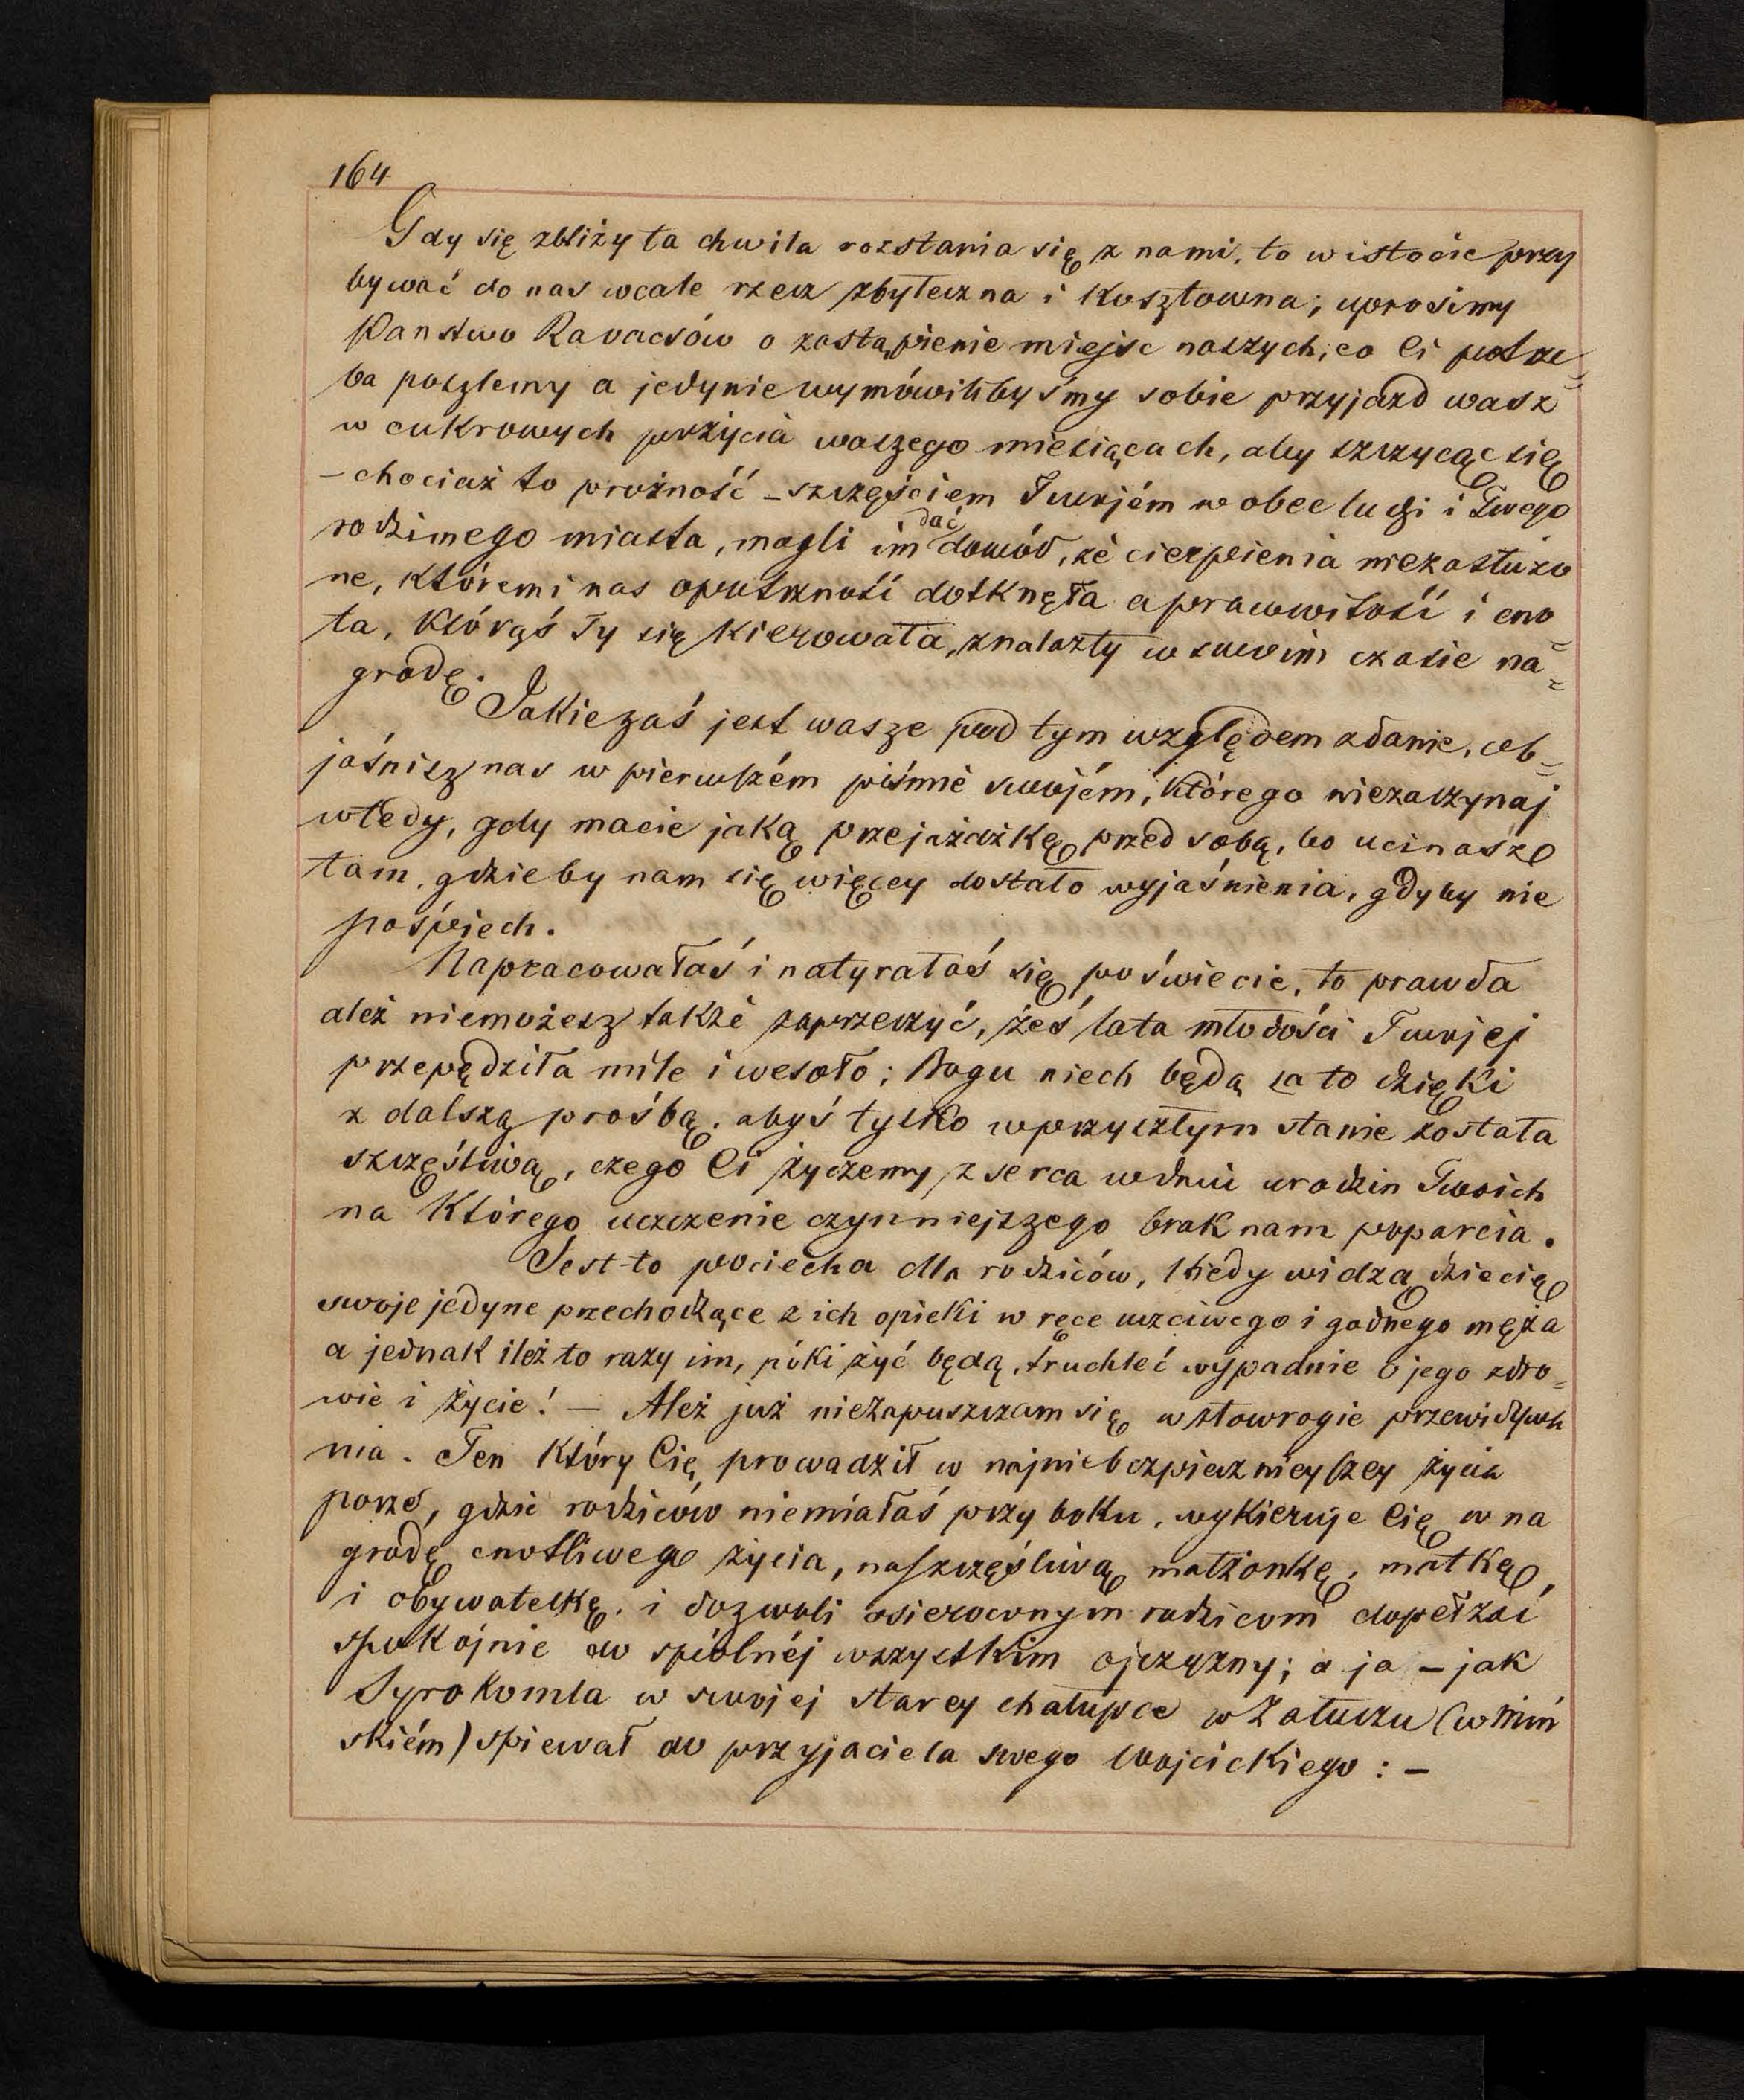 164
Gdy się zbliży ta chwila rozstania się z nami, to w istocie przy
bywać do nas wcale rzecz zbyteczna i kosztowna; uprosimy
Państwo Kovacsów o zastąpienie miejsc naszych, co Ci potrze=
ba poszlemy a jedynie wymówilibyśmy sobie przyjazd wasz
w cukrowych pożycia waszego miesiącach, aby szczycąc się
– chociaż to prożność – szczęściem Twojém w obec ludzi i Twego
rodzimego miasta, mogli im dać dowód, że cierpienia niezasłużo
ne, któremi nas opatrzność dotknęła a prawowitość i cno=
ta, którąś Ty się kierowała, znalazły w swoim czasie na=
grodę.
Jakie zaś jest wasze pod tym względem zdanie, ob=
jaśnisz nas w pierwszém piśmie swojém, którego niezaczynaj
wtedy, gdy macie jaką przejażdżkę przed sobą, bo ucinasz
tam, gdzieby nam się więcey dostało wyjaśnienia, gdyby nie
pośpiech.
Napracowałaś i natyrałaś się po świecie, to prawda
ależ niemożesz także zaprzeczyć, żeś lata młodości Twojej
przepędziła mile i wesoło; Bogu niech będą za to dzięki
z dalszą prośbą, abyś tylko w przyszłym stanie została
szczęśliwą, czego Ci życzemy z serca w dniu urodzin Twoich
na którego uczczenie czynniejszego brak nam poparcia.
Jest-to pociecha dla rodziców, kiedy widzą dziecię
swoje jedyne przechodzące z ich opieki w ręce uczciwego i godnego męża
a jednak ileż to razy im, póki żyć będą, truchleć wypadnie o jego zdro=
wie i życie! – Ależ już niezapuszczam się w złowrogie przewidywa
nia. Ten który Cię prowadził w najniebezpieczniejszey życia
porze, gdzie rodziców niemiałaś przy boku, wykieruje Cię w na
grodę cnotliwego życia, na szczęśliwą małżonkę, matkę,
i obywatelkę, i dozwoli osieroconym rodzicom dopełzać
spokojnie do spólnéj wszystkim ojczyzny; a ja – jak
Syrokomla w swojej starey chałupce w Załuczu (w Miń
skiém) spiewał do przyjaciela swego Wojcickiego : –